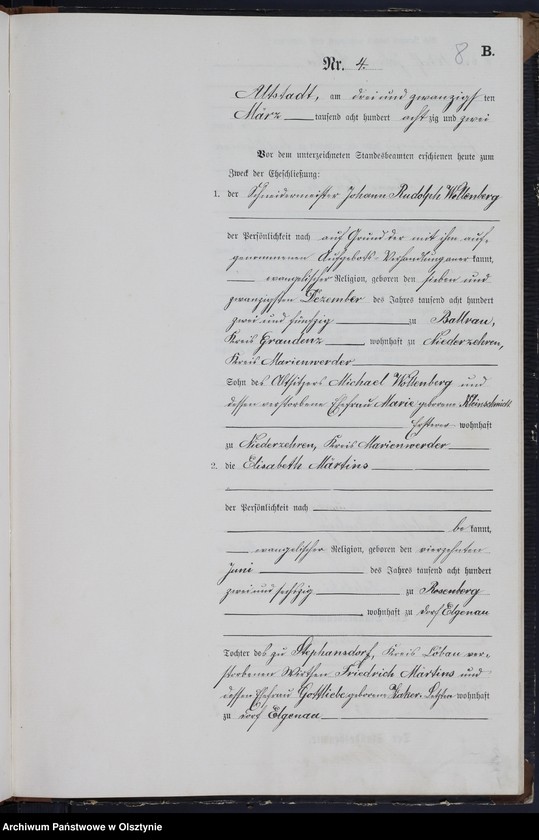 8 B.
Nr. 4.
Altstadt, am drei und zwanzigsten
März tausend acht hundert achtzig und zwei
Vor dem unterzeichneten Standesbeamten erschienen heute zum
Zweck der Eheschließung:
1. der Schneidermeister Johann Rudolph Woltenberg
der Persönlichkeit nach auf Grund der mit ihm auf-
genommenen Aufgebots-Verhandlung anerkannt,
evangelischer Religion, geboren den sieben und
zwanzigsten Dezember des Jahres tausend acht hundert
zwei und fünfzig zu
Kreis Graudenz wohnhaft zu Niederzehren,
Kreis Marienwerder
Sohn des Altsitzers Michael Woltenberg und
dessen verstorbene Ehefrau Marie geborene Kleinschmidt
Ersterer wohnhaft
zu Niederzehren, Kreis Marienwerder
2. die Elisabeth Märtins
der Persönlichkeit nach
bekannt,
evangelischer Religion, geboren den vierzehnten
Juni des Jahres tausend acht hundert
zwei und sechszig zu Rosenberg
wohnhaft zu Dorf Elgenau
Tochter des zu Stephansdorf, Kreis Löbau ver-
storbenen Wirthen Friedrich Märtins und
dessen Ehefrau Gottliebe geborene Letztere wohnhaft
zu Dorf Elgenau
Archiwum Państwowe w Olsztynie